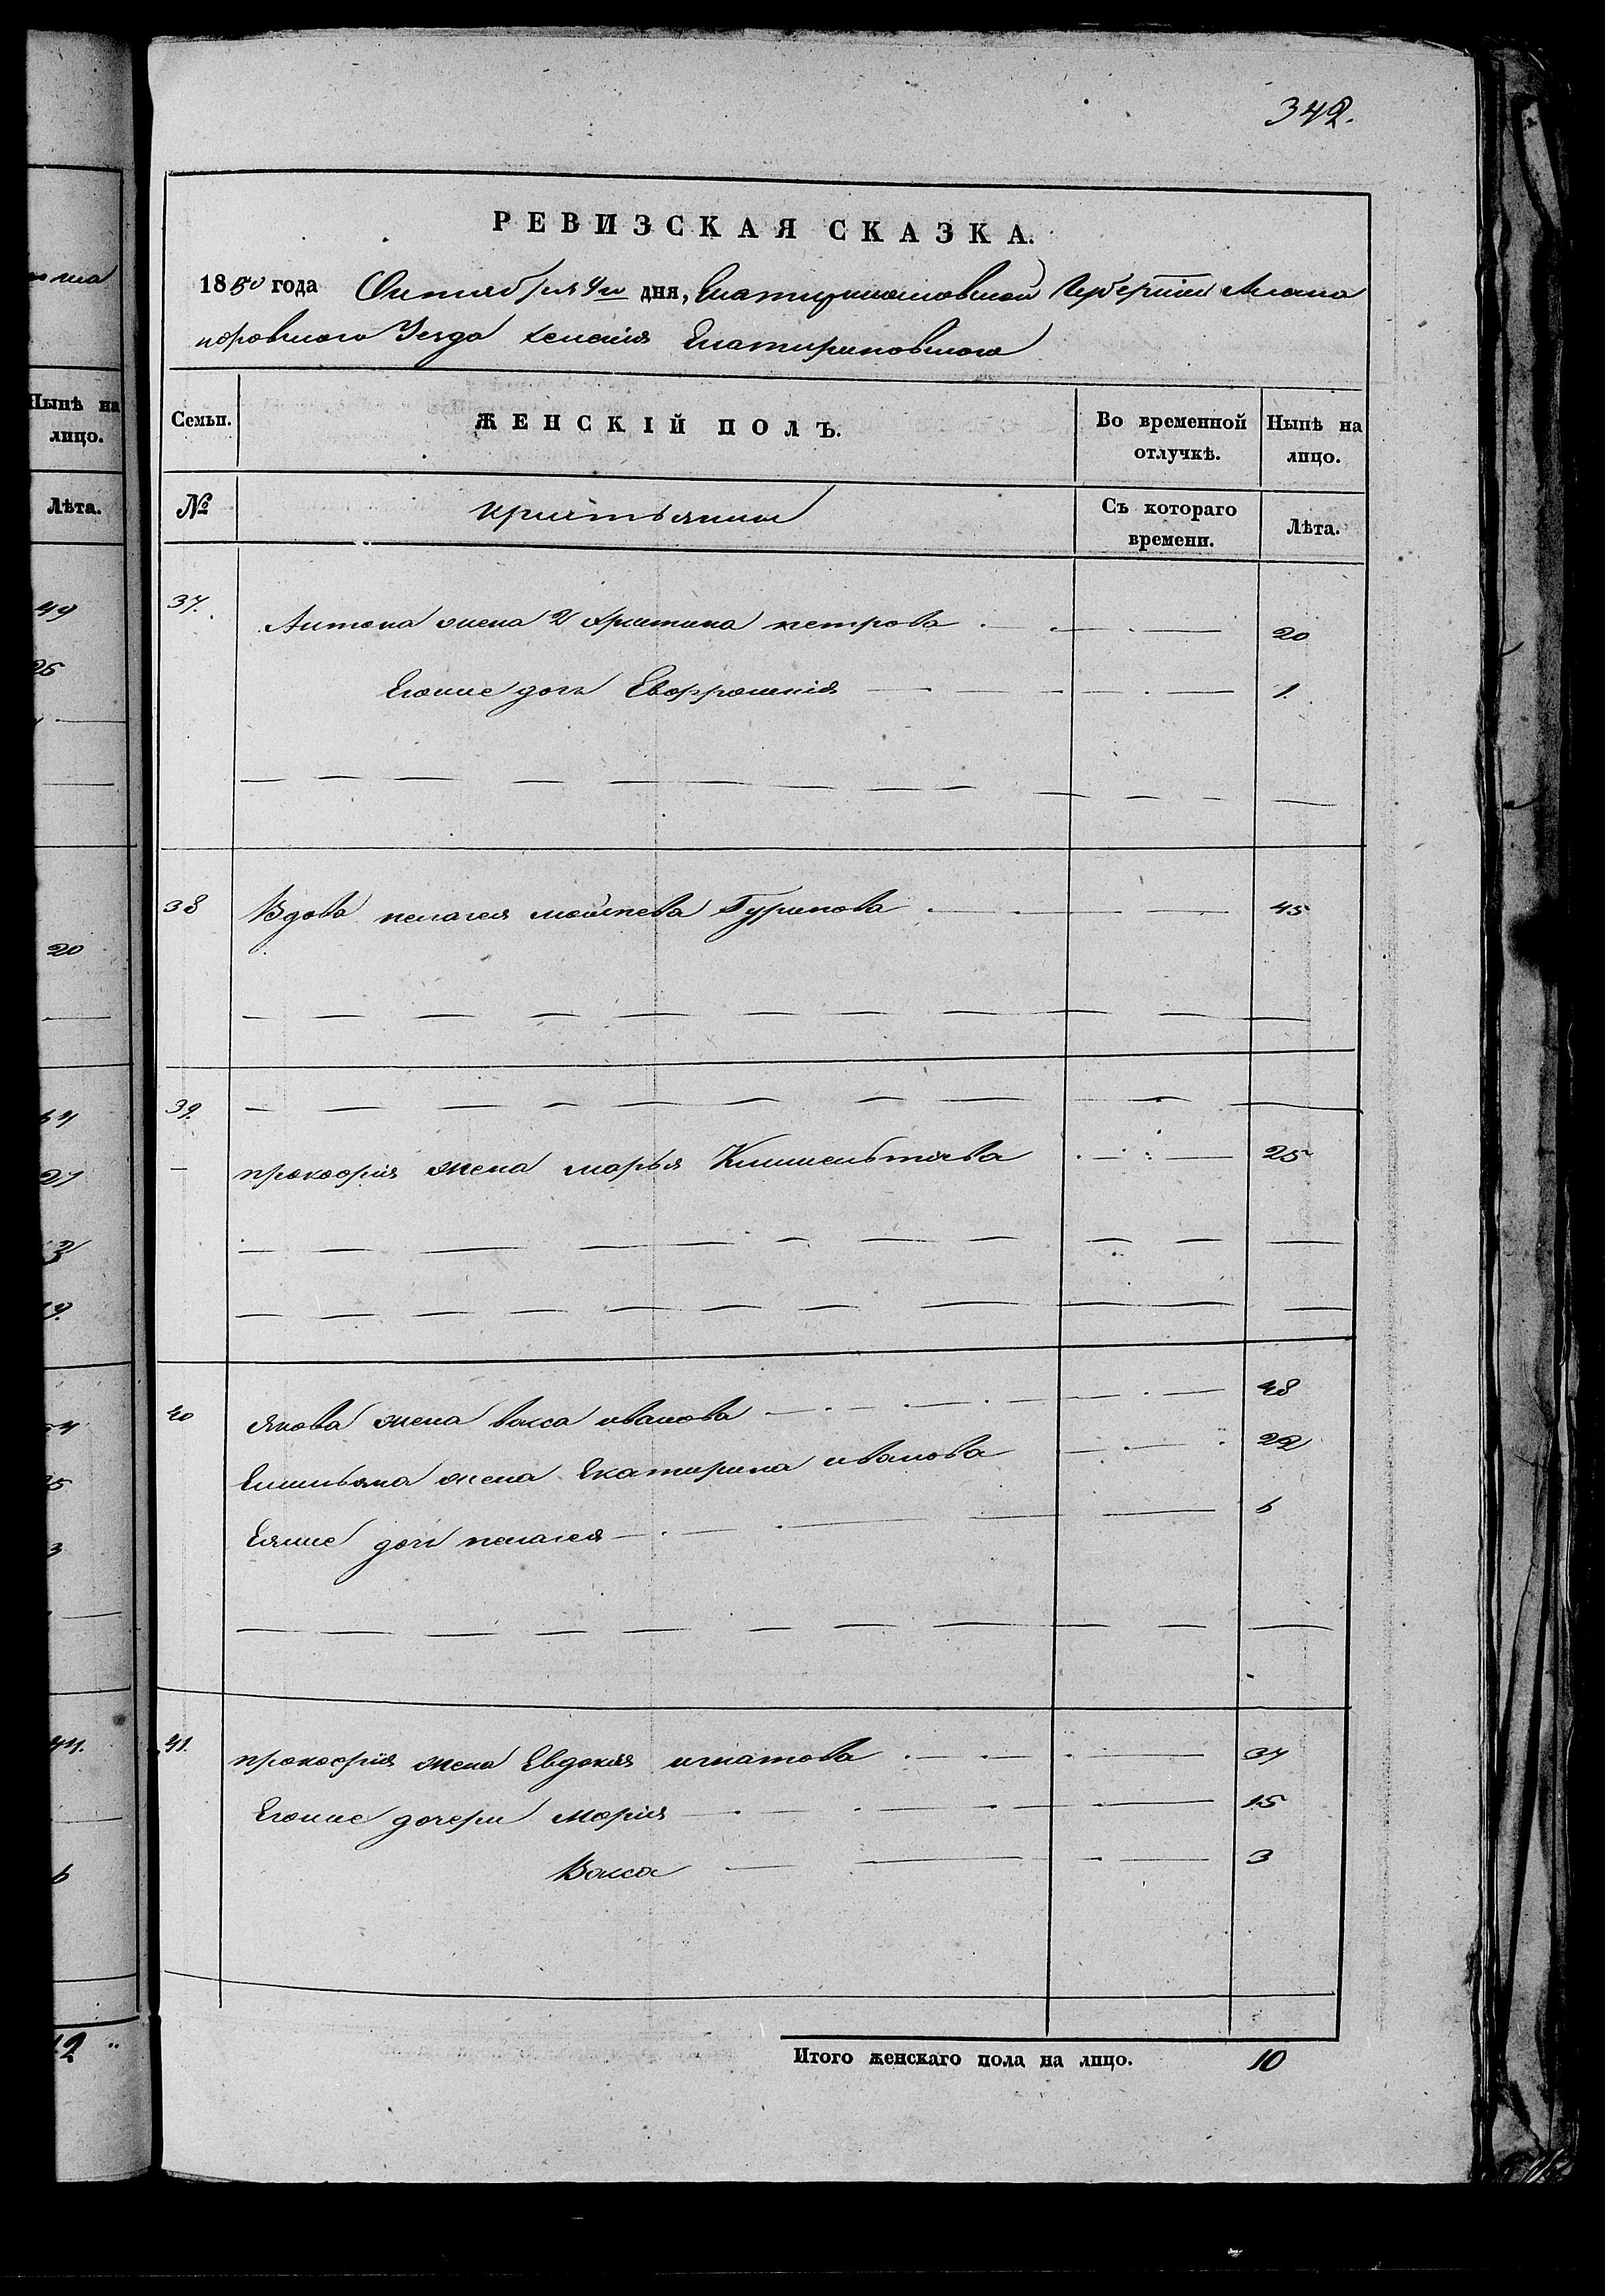 342.
РЕВИЗСКАЯ СКАЗКА.
1850 года Октября 4го дня, Екатеринославской Губернии Алекса
ндровского Уезда селения Екатериновского
Семьи. ЖЕНСКІЙ ПОЛЪ. Во временной отлучкѣ. Нынѣ на лицо.
№ крестьянки Съ котораго времени. Лѣта.
37. Антона жена 2 Христина петрова 20
Егоже дочь Евфросинія 1.
38 Вдова пелагея моисеева Гуринова 45
39.
прокофія жена марья Климентьева 25
40 Якова жена васса иванова 48
Емельяна жена Екатерина иванова 22
Еяже дочь пелагея 6
41. прокофія жена Евдокія игнатова 34
Егоже дочери Марія 15
Васса 3
Итого женскаго пола на лицо. 10
Нынѣ на
лицо.
Лѣта.
49
26
20
27
3